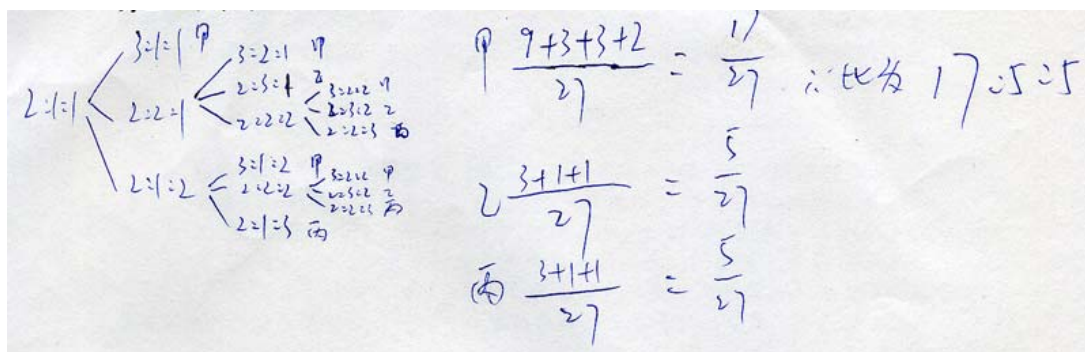 2:1:1
3:1:1 甲
2:2:1
3:2:1 甲
2:3:1 乙
2:2:2
3:2:2 甲
2:3:2 乙
2:2:3 丙
2:1:2
3:1:2 甲
2:2:2
3:2:2 甲
2:3:2 乙
2:2:3 丙
2:1:3 丙
甲 9+3+3+2/27 = 17/27 ∴比为 17:5:5
乙 3+1+1/27 = 5/27
丙 3+1+1/27 = 5/27